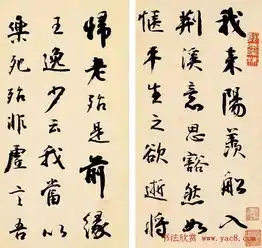 我来陽羨船入
荆溪意思豁然如
惬平生之欲逝将
歸老殆是前緣
王逸少云我當以
樂死殆非虛言吾
书法欣赏
www.yac8.com